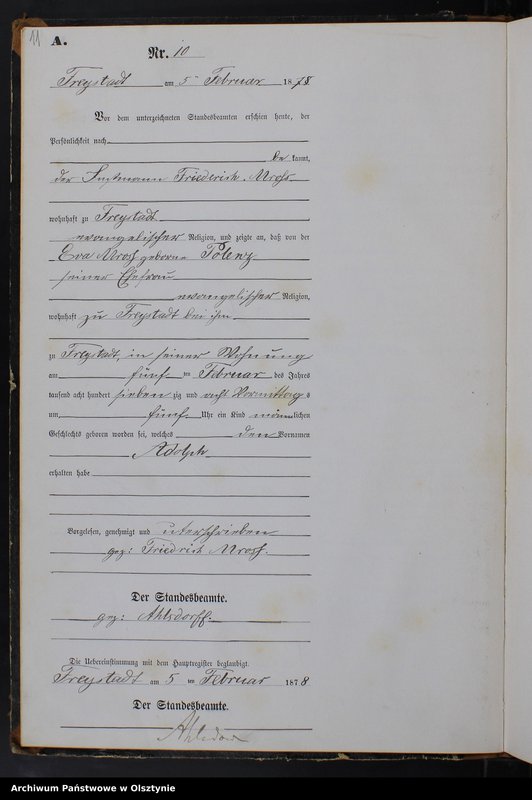 11
A.
Nr. 10
Freystadt am 5ten Februar 1878
Vor dem unterzeichneten Standesbeamten erschien heute, der
Persönlichkeit nach
be kannt,
der Friederich Mross
wohnhaft zu Freystadt
evangelischer Religion, und zeigte an, daß von der
Eva Mross geborene Polenz
seiner Ehefrau
evangelischer Religion,
wohnhaft zu Freystadt bei ihm
zu Freystadt, in seiner Wohnung
am fünf ten Februar des Jahres
tausend acht hundert sieben zig und acht Vormittag s
um fünf Uhr ein Kind männlichen
Geschlechts geboren worden sei, welches den Vornamen
Adolph
erhalten habe
Vorgelesen, genehmigt und unterschrieben
gez: Friedrich Mross.
Der Standesbeamte.
gez: Ahlsdorff.
Die Uebereinstimmung mit dem Hauptregister beglaubigt.
Freystadt am 5 ten Februar 1878
Der Standesbeamte.
Ahlsdorff
Archiwum Państwowe w Olsztynie